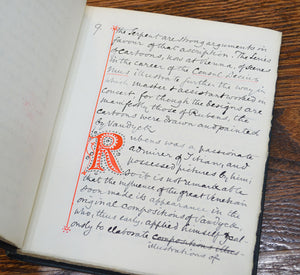 9
the Serpent are strong arguments in
favour of that ascription. The Series
of cartoons, now at Vienna, of scenes
in the career of the Consul Decius
Mus illustrate further the way in
which master & assistant worked in
concert for though the designs are
manifestly those of Rubens, the
cartoons were drawn and painted
by Vandyck
Rubens was a passionate
admirer of Titian, and
possessed pictures by him,
so it is not remarkable
that the influence of the great Venetian
soon made its appearance in the
original compositions of Vandyck,
who, thus early, applied himself zeal-
ously to elaborate compositions
illustrations of